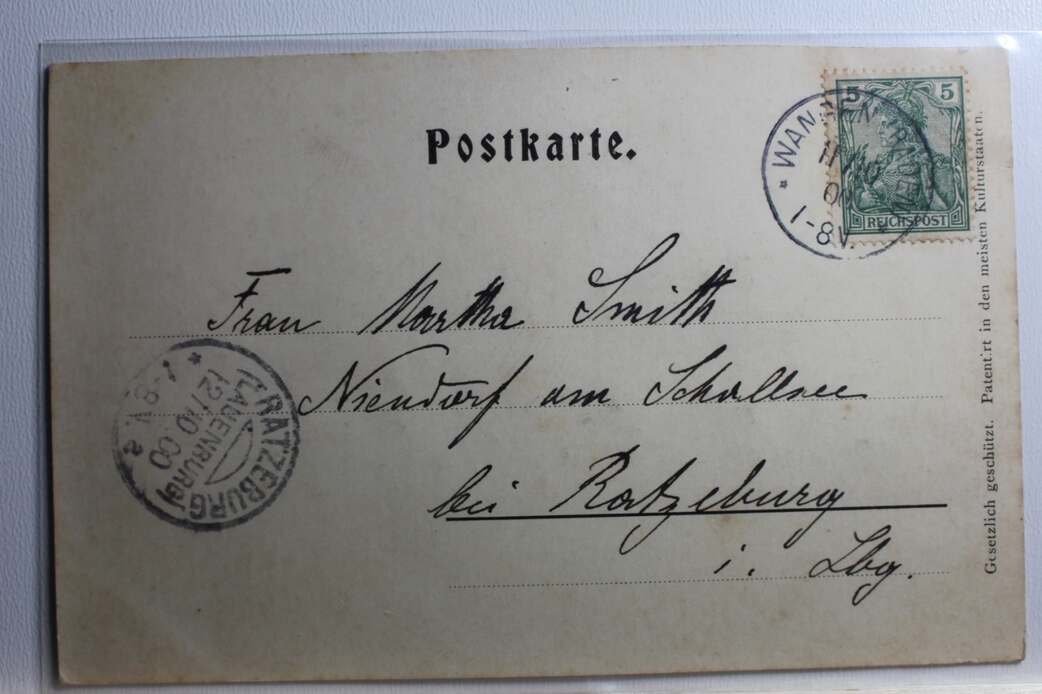 Postkarte.
5 5
REICHSPOST
1-8V.
Frau Martha Smith
Niendorf am Schallsee
bei Ratzeburg
i. Lbg.
RATZEBURG
LAUENBURG
12/10 00
7-8V.
Gesetzlich geschützt. Patentirt in den meisten Kulturstaaten.